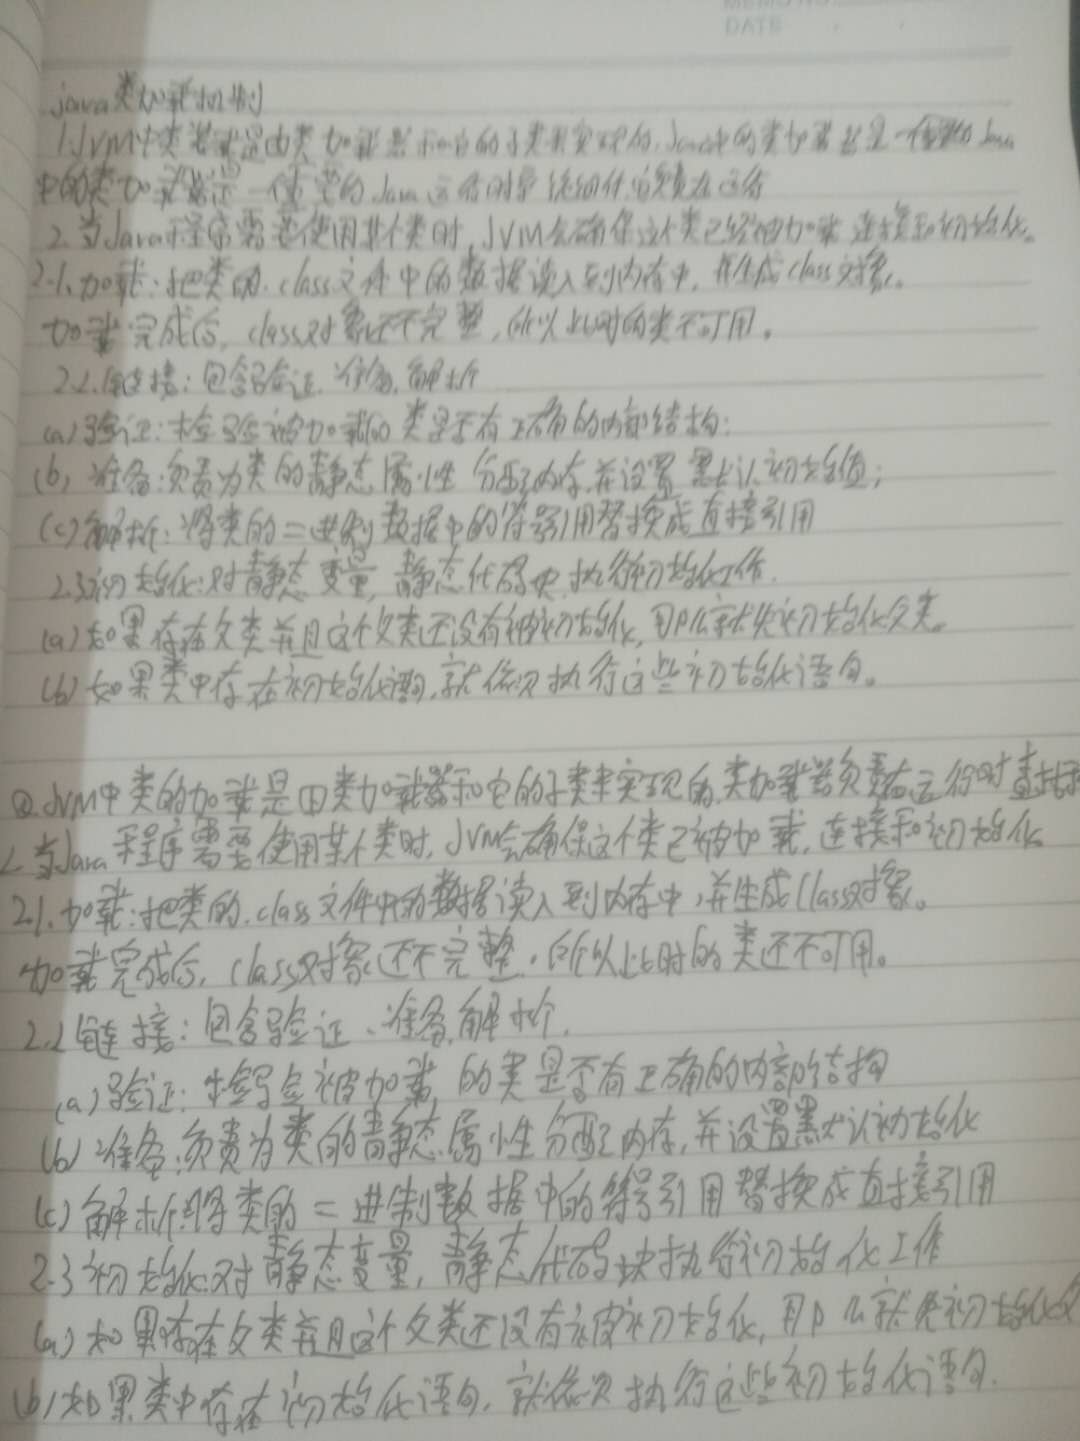 MEMO NO.
DATE
java类加载机制
1.JVM中类装载是由类加载器和它的子类来实现的,Java中的类加载器是一个重要的Java
中的类加载器是一个重要的Java运行时系统组件,它负责在运行
2.当Java程序需要使用某个类时,JVM会确保这个类已经被加载、连接和初始化。
2.1.加载:把类的.class文件中的数据读入到内存中,并生成class对象。
加载完成后,class对象还不完整,所以此时的类不可用。
2.2.链接:包含验证、准备、解析
(a)验证:检验被加载的类是否有正确的内部结构;
(b)准备:负责为类的静态属性分配内存,并设置默认初始值;
(c)解析:将类的二进制数据中的符号引用替换成直接引用
2.3初始化:对静态变量,静态代码块执行初始化工作.
(a)如果存在父类并且这个父类还没有被初始化,那么就先初始化父类。
(b)如果类中存在初始化语句,就依次执行这些初始化语句。
JVM中类的加载是由类加载器和它的子类来实现的,类加载器负责在运行时查找和
2.当Java程序需要使用某个类时,JVM会确保这个类已被加载,连接和初始化。
2.1.加载:把类的.class文件中的数据读入到内存中,并生成Class对象。
加载完成后,class对象还不完整,所以此时的类还不可用。
2.2链接:包含验证、准备、解析.
(a)验证:检验被加载的类是否有正确的内部结构
(b)准备:负责为类的静态属性分配内存,并设置默认初始化
(c)解析:将类的二进制数据中的符号引用替换成直接引用
2.3初始化:对静态变量,静态代码块执行初始化工作
(a)如果存在父类并且这个父类还没有被初始化,那么就先初始化父
(b)如果类中存在初始化语句,就依次执行这些初始化语句.